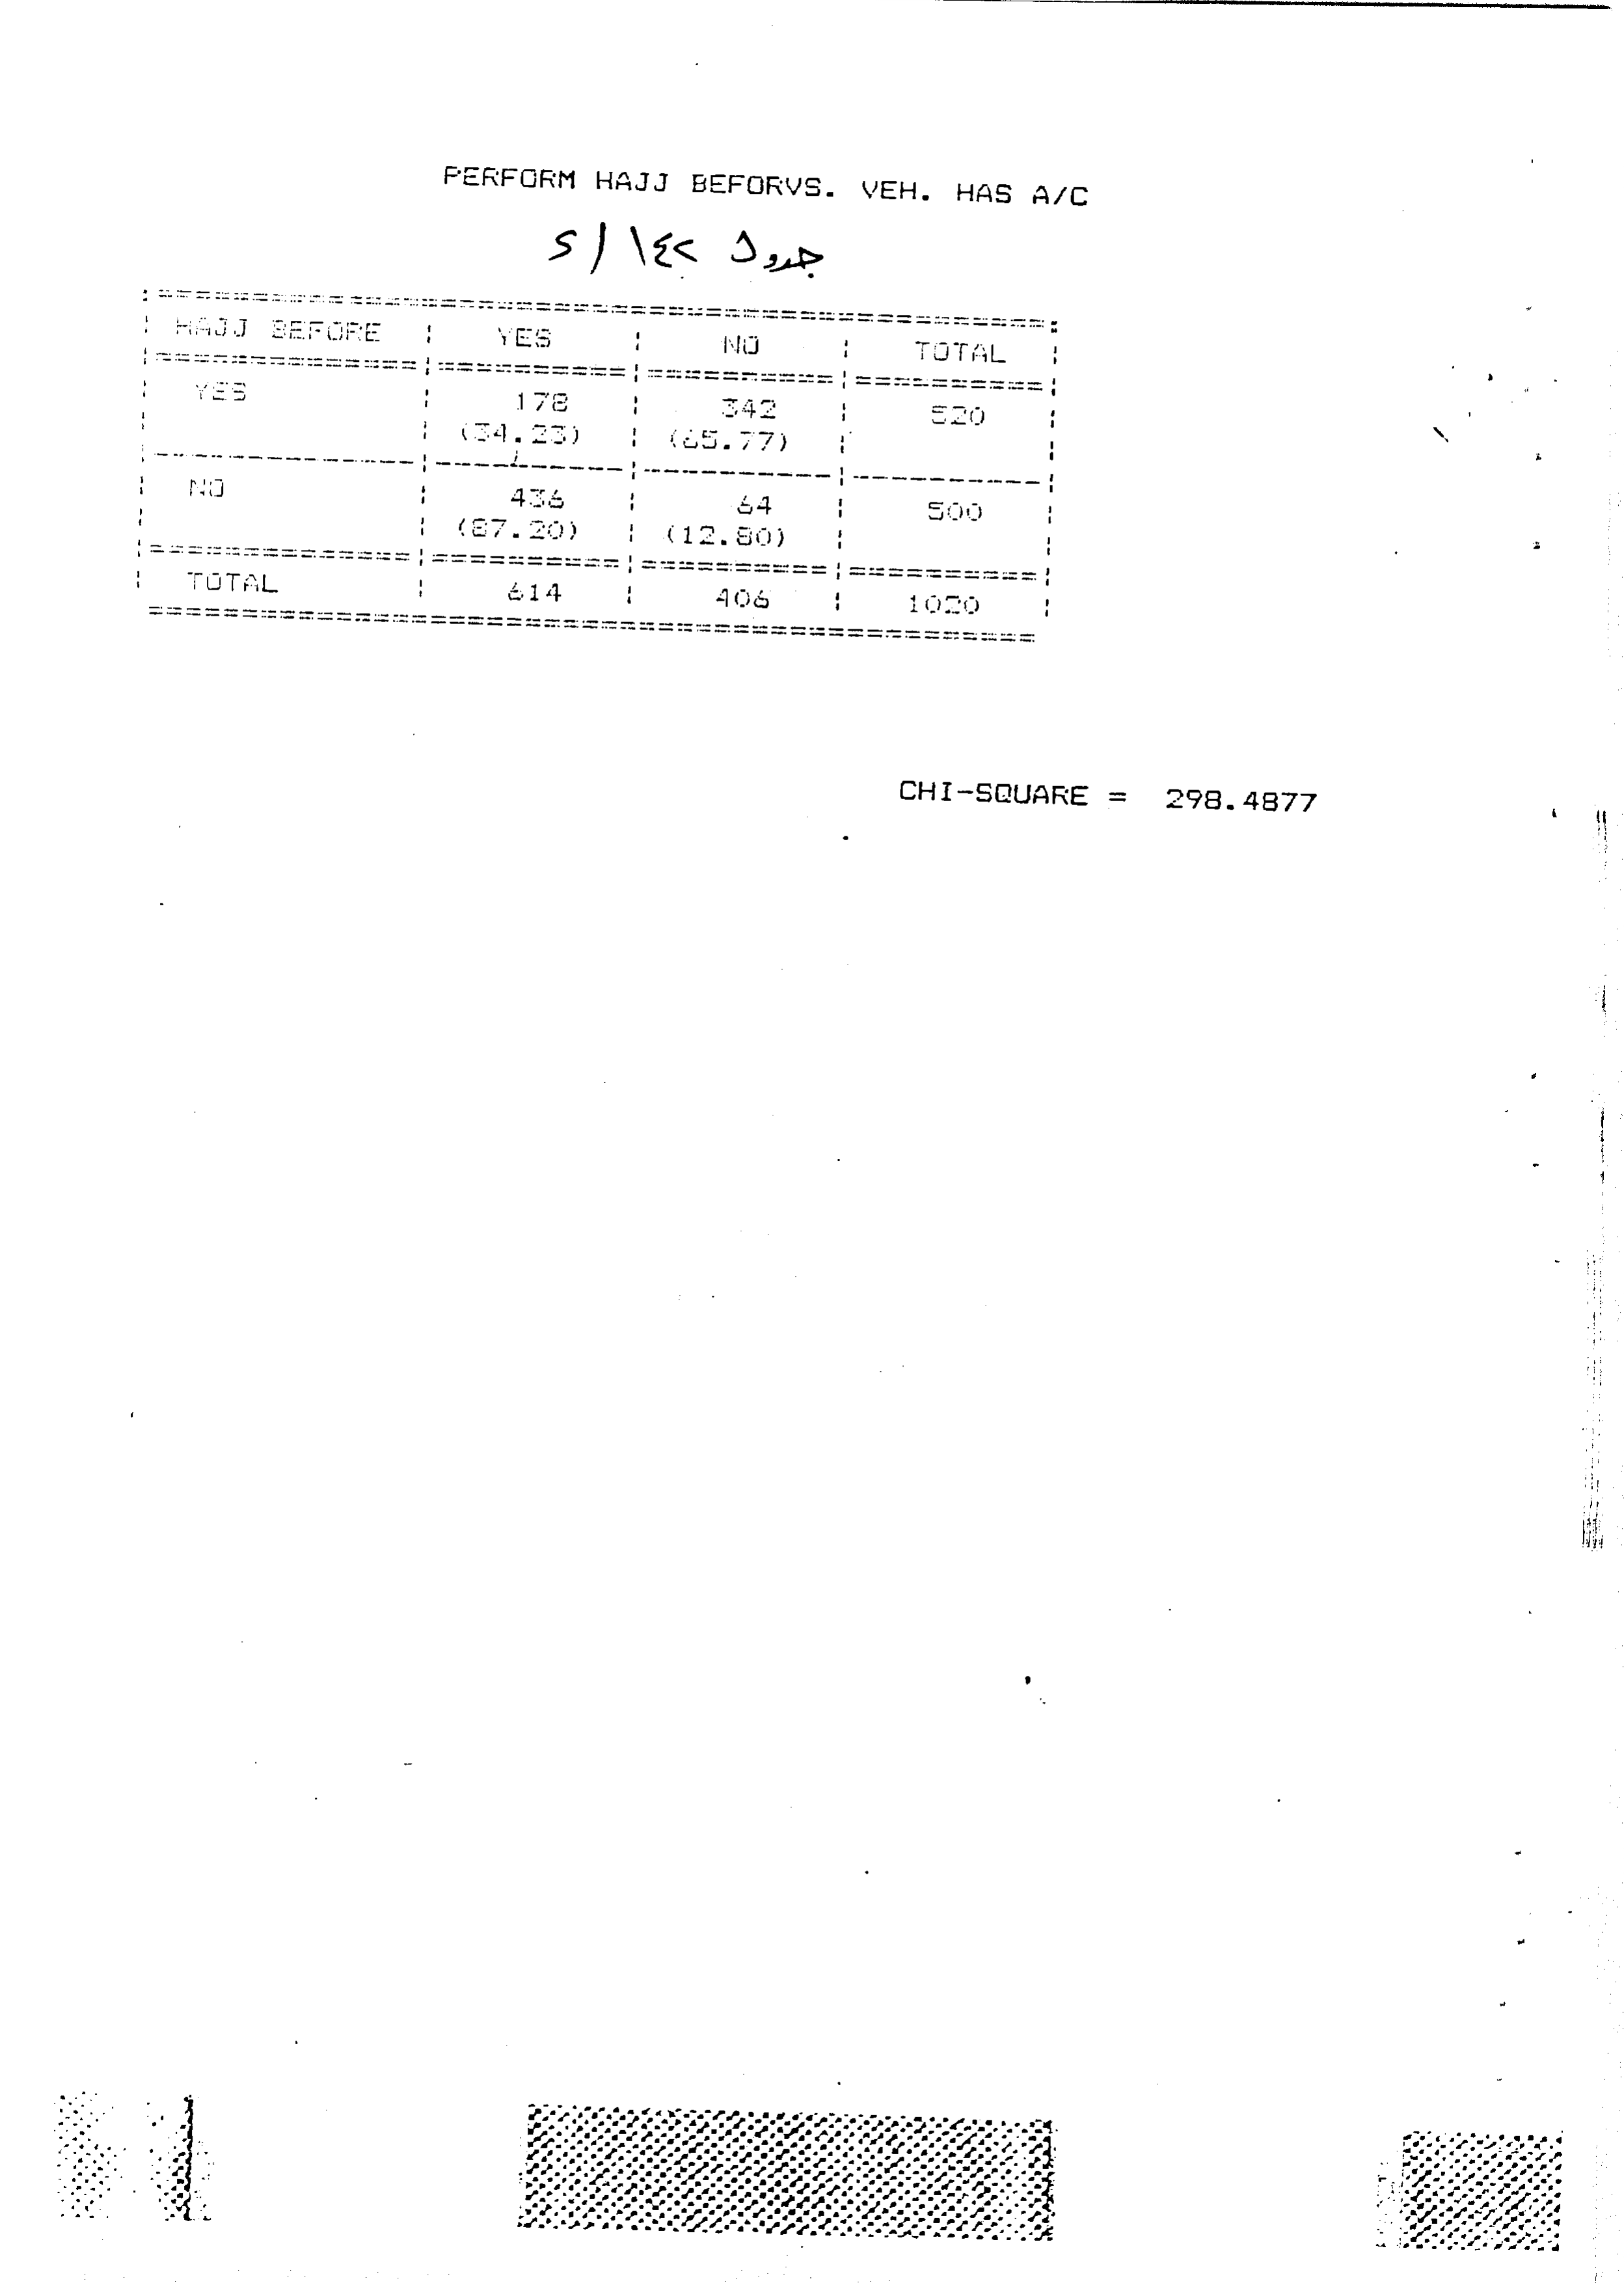 PERFORM HAJJ BEFORVS. VEH. HAS A/C
جدول ١٤٢ / ٢
HAJJ BEFORE YES NO TOTAL
YES 178 342 520
(34.23) (65.77)
NO 436 64 500
(87.20) (12.80)
TOTAL 614 406 1020
CHI-SQUARE = 298.4877